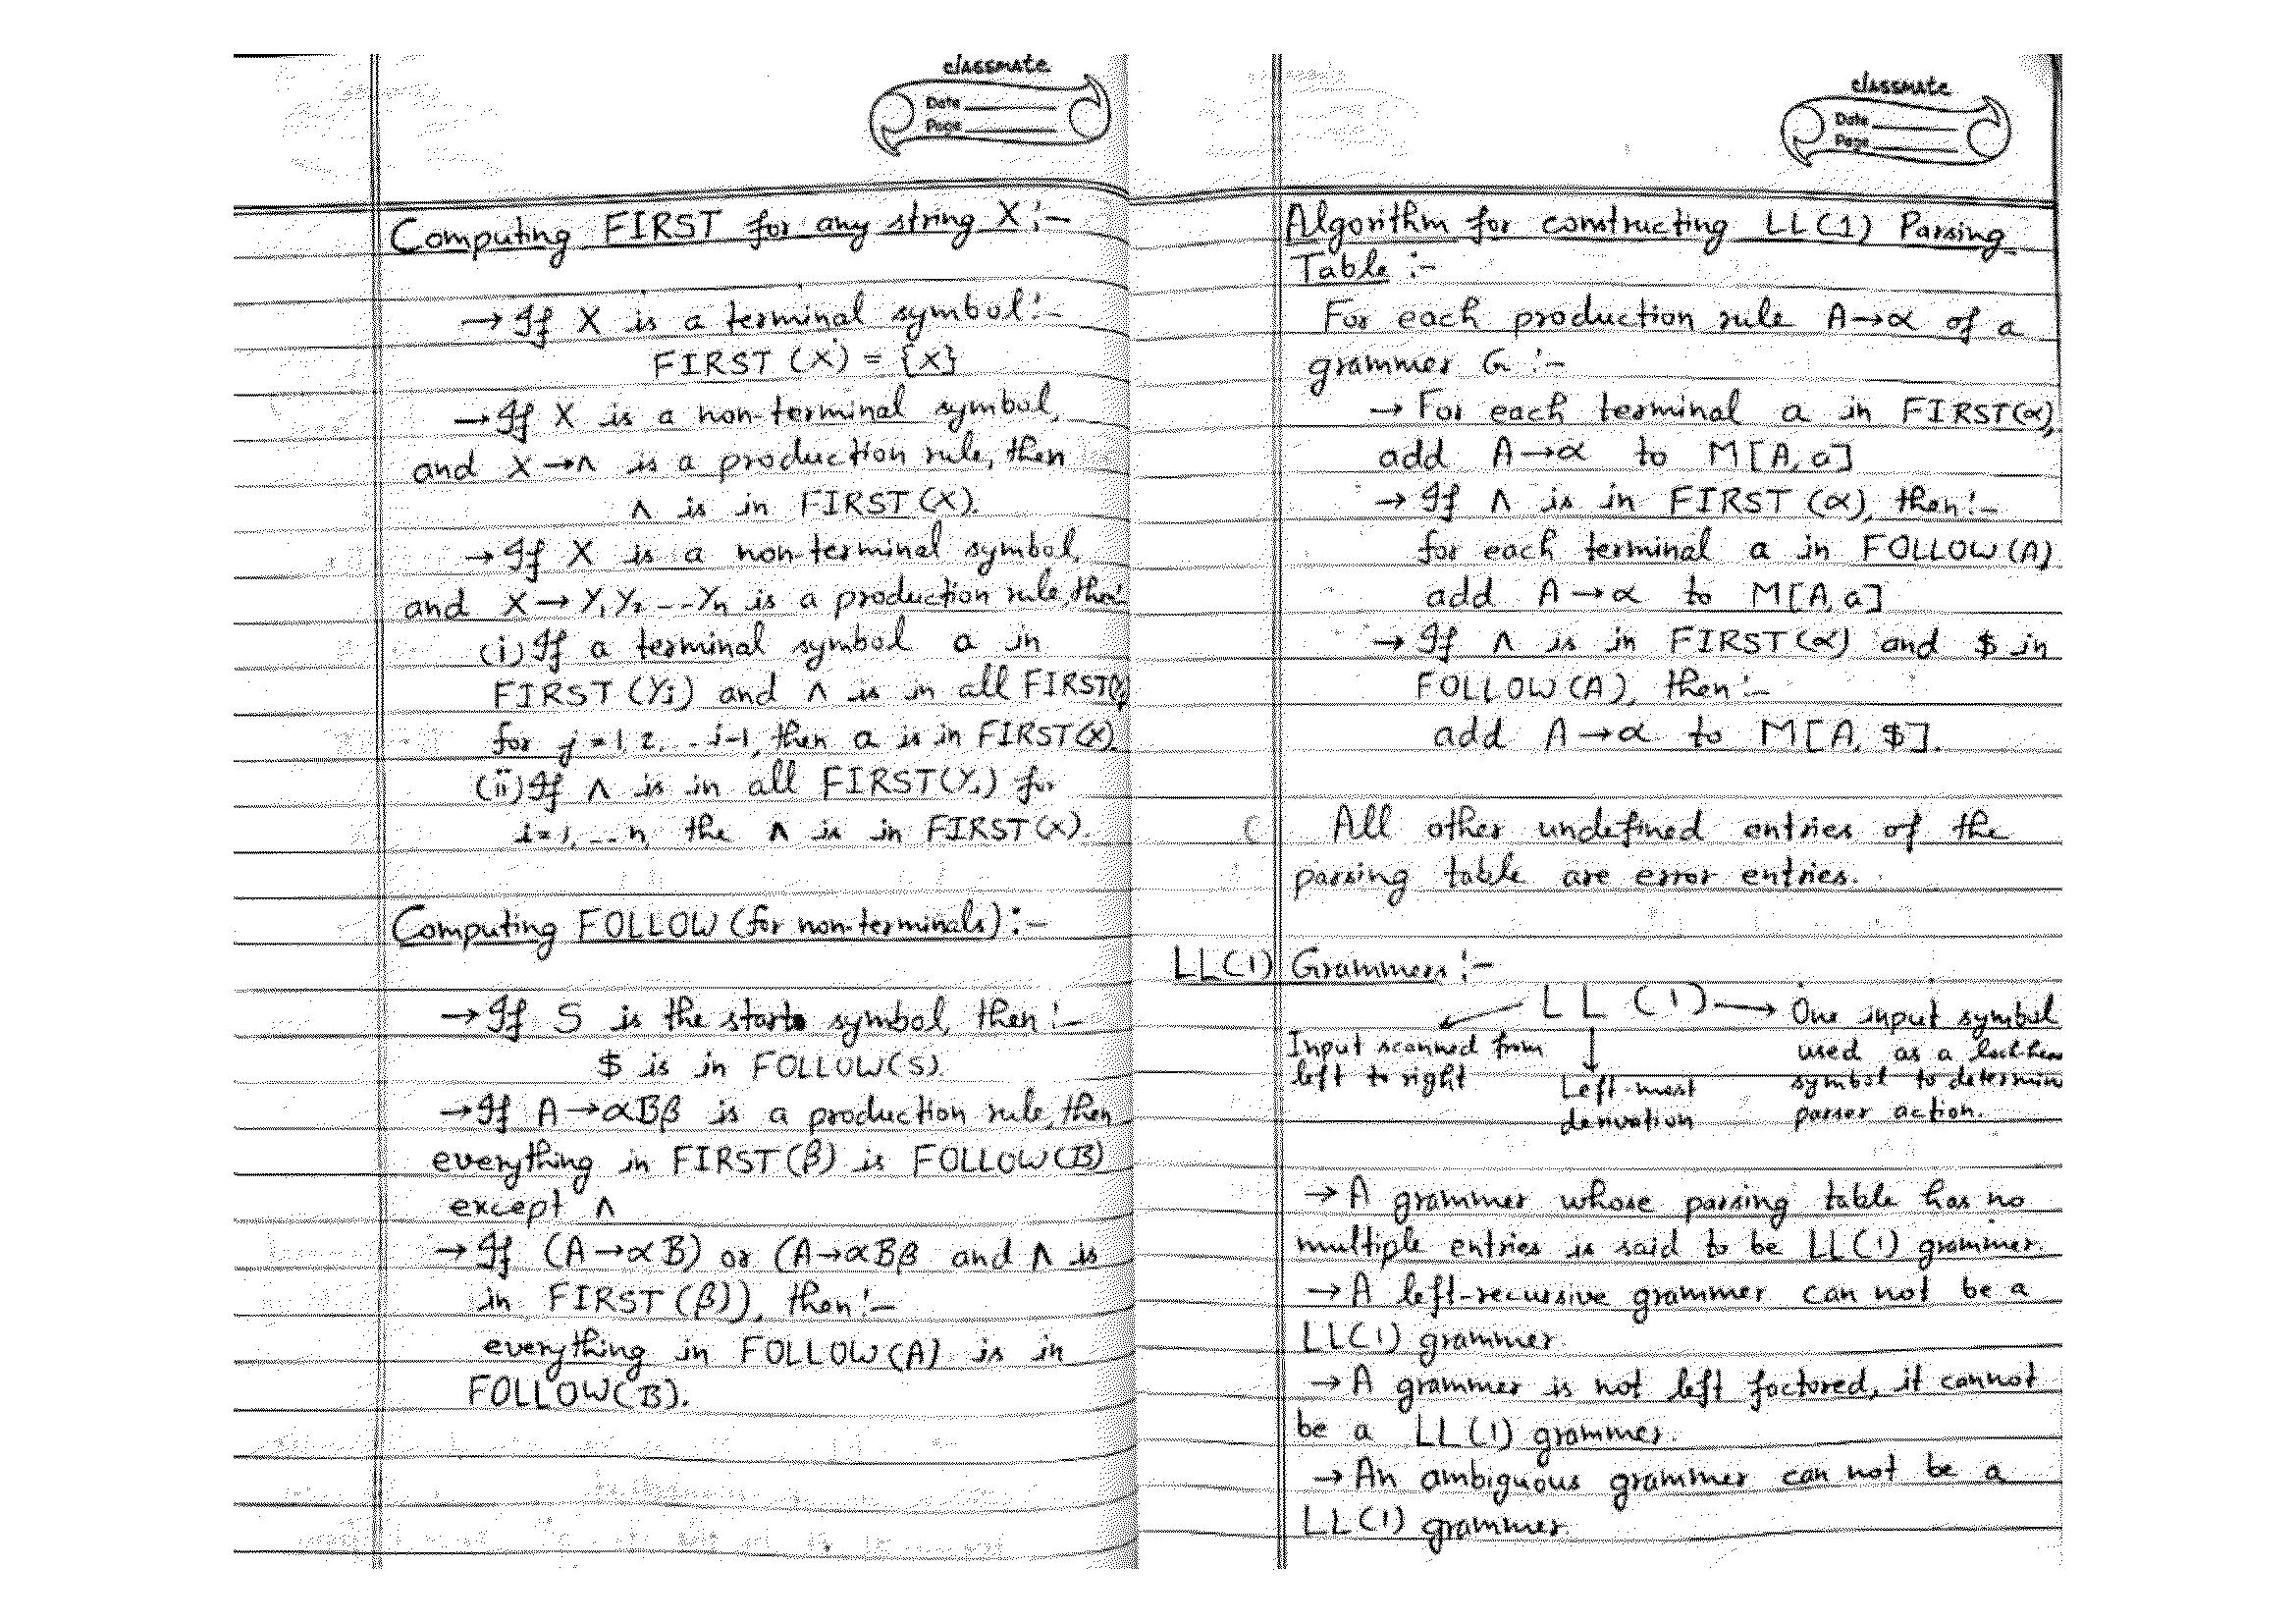 classmate
Date
Page
Computing FIRST for any string X :-
→ If X is a terminal symbol :-
FIRST (X) = {X}
→ If X is a non-terminal symbol,
and X → Λ is a production rule, then
Λ is in FIRST (X).
→ If X is a non-terminal symbol,
and X → Y₁ Y₂ --- Yn is a production rule, then
(i) If a terminal symbol a in
FIRST (Yi) and Λ is in all FIRST(Y
for j = 1, 2, .. i-1, then a is in FIRST(X)
(ii) If Λ is in all FIRST(Yi) for
i = 1, --- n, the Λ is in FIRST(X).
Computing FOLLOW (for non-terminals) :-
→ If S is the start symbol, then :-
$ is in FOLLOW(S).
→ If A → αBβ is a production rule, then
everything in FIRST(β) is FOLLOW(B)
except Λ
→ If (A → αB) or (A → αBβ and Λ is
in FIRST(β)), then :-
everything in FOLLOW(A) is in
FOLLOW(B).
classmate
Date
Page
Algorithm for constructing LL(1) Parsing
Table :-
For each production rule A → α of a
grammer G :-
→ For each terminal a in FIRST(α),
add A → α to M[A, a]
→ If Λ is in FIRST (α), then :-
for each terminal a in FOLLOW(A)
add A → α to M[A, a]
→ If Λ is in FIRST(α) and $ in
FOLLOW(A), then :-
add A → α to M[A, $].
All other undefined entries of the
parsing table are error entries.
LL(1) Grammers :-
LL (1) → One input symbol
Input scanned from used as a
left to right symbol to determin
Left-most parser action.
derivation
→ A grammer whose parsing table has no
multiple entries is said to be LL(1) grammer.
→ A left-recursive grammer can not be a
LL(1) grammer.
→ A grammer is not left factored, it cannot
be a LL(1) grammer.
→ An ambiguous grammer can not be a
LL(1) grammer.